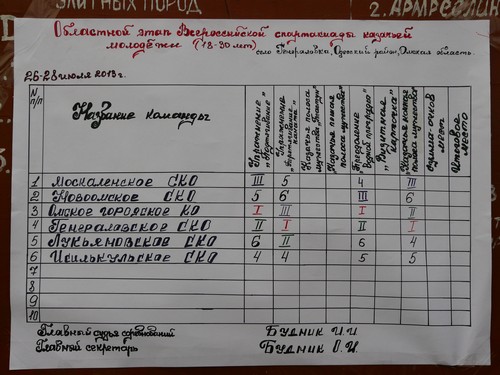 ЭЛИТНЫХ ПОРОД
2. АРМРЕСЛИН
Областной этап Всероссийской спартакиады казачьей
молодёжи (18-30 лет) село Генераловка, Одесский район, Омская область.
26-28 июля 2013 г.
N п/п Название команды Упражнение "Подтягивание" Упражнение "Перетягивание каната" Казачья полоса мужества Казачья пешая полоса мужества Преодоление водной преграды "Визитная карточка" Казачья конная полоса мужества Сумма очков мест Итоговое место
1 Москаленское СКО III 5 4 III
2 Новоомское СКО 5 6 III 6
3 Омское городское КО I III I II
4 Генераловское СКО II I II I
5 Лукьяновское СКО 6 II 6 4
6 Исилькульское СКО 4 4 5 5
7
8
9
10
Главный судья соревнований Будник И.И.
Главный секретарь Будник О.И.